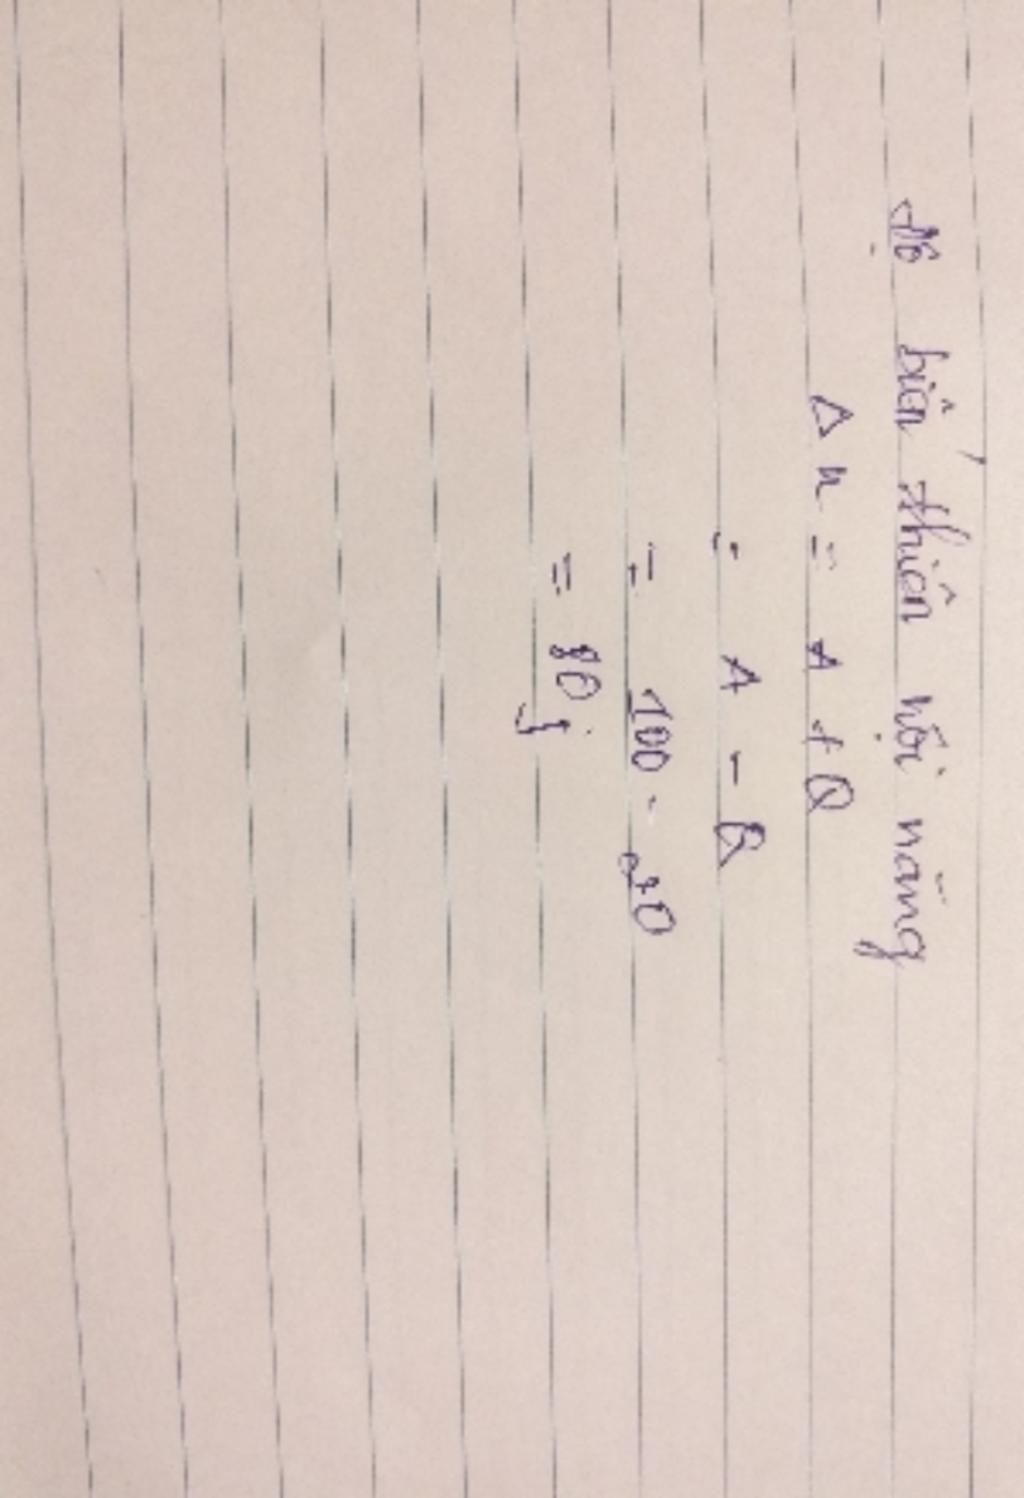 Độ biến thiên nội năng
Δu = A + Q
= A - Q
= 100 - 20
= 80 J